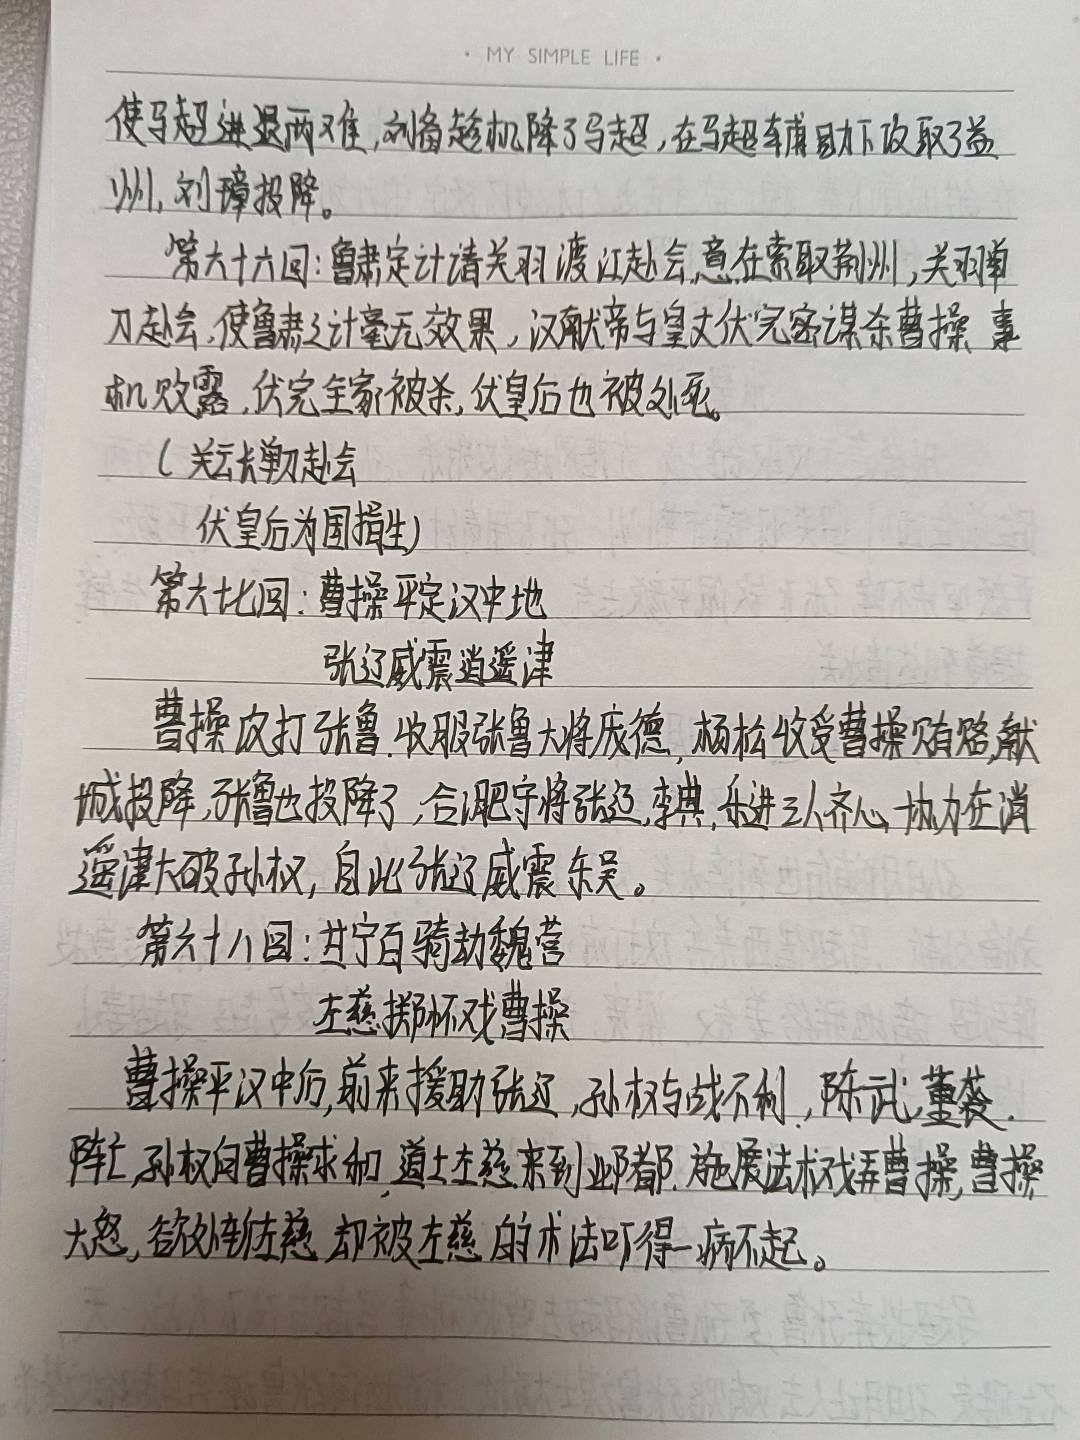 · MY SIMPLE LIFE ·
使马超进退两难,刘备趁机降了马超,在马超辅助下攻取了益
州,刘璋投降。
第六十六回:鲁肃定计请关羽渡江赴会,意在索取荆州,关羽单
刀赴会,使鲁肃之计毫无效果,汉献帝与皇丈伏完密谋杀曹操 事
机败露,伏完全家被杀,伏皇后也被处死。
(关云长单刀赴会
伏皇后为国捐生)
第六十七回:曹操平定汉中地
张辽威震逍遥津
曹操攻打张鲁,收服张鲁大将庞德,杨松收受曹操贿赂,献
城投降,张鲁也投降了,合淝守将张辽,李典,乐进三人齐心协力在逍
遥津大破孙权,自此张辽威震东吴。
第六十八回:甘宁百骑劫魏营
左慈掷杯戏曹操
曹操平汉中后,前来援助张辽,孙权与战不利,陈武,董袭
阵亡,孙权向曹操求和,道士左慈来到邺都,施展法术戏弄曹操,曹操
大怒,欲处斩左慈 却被左慈的术法吓得一病不起。